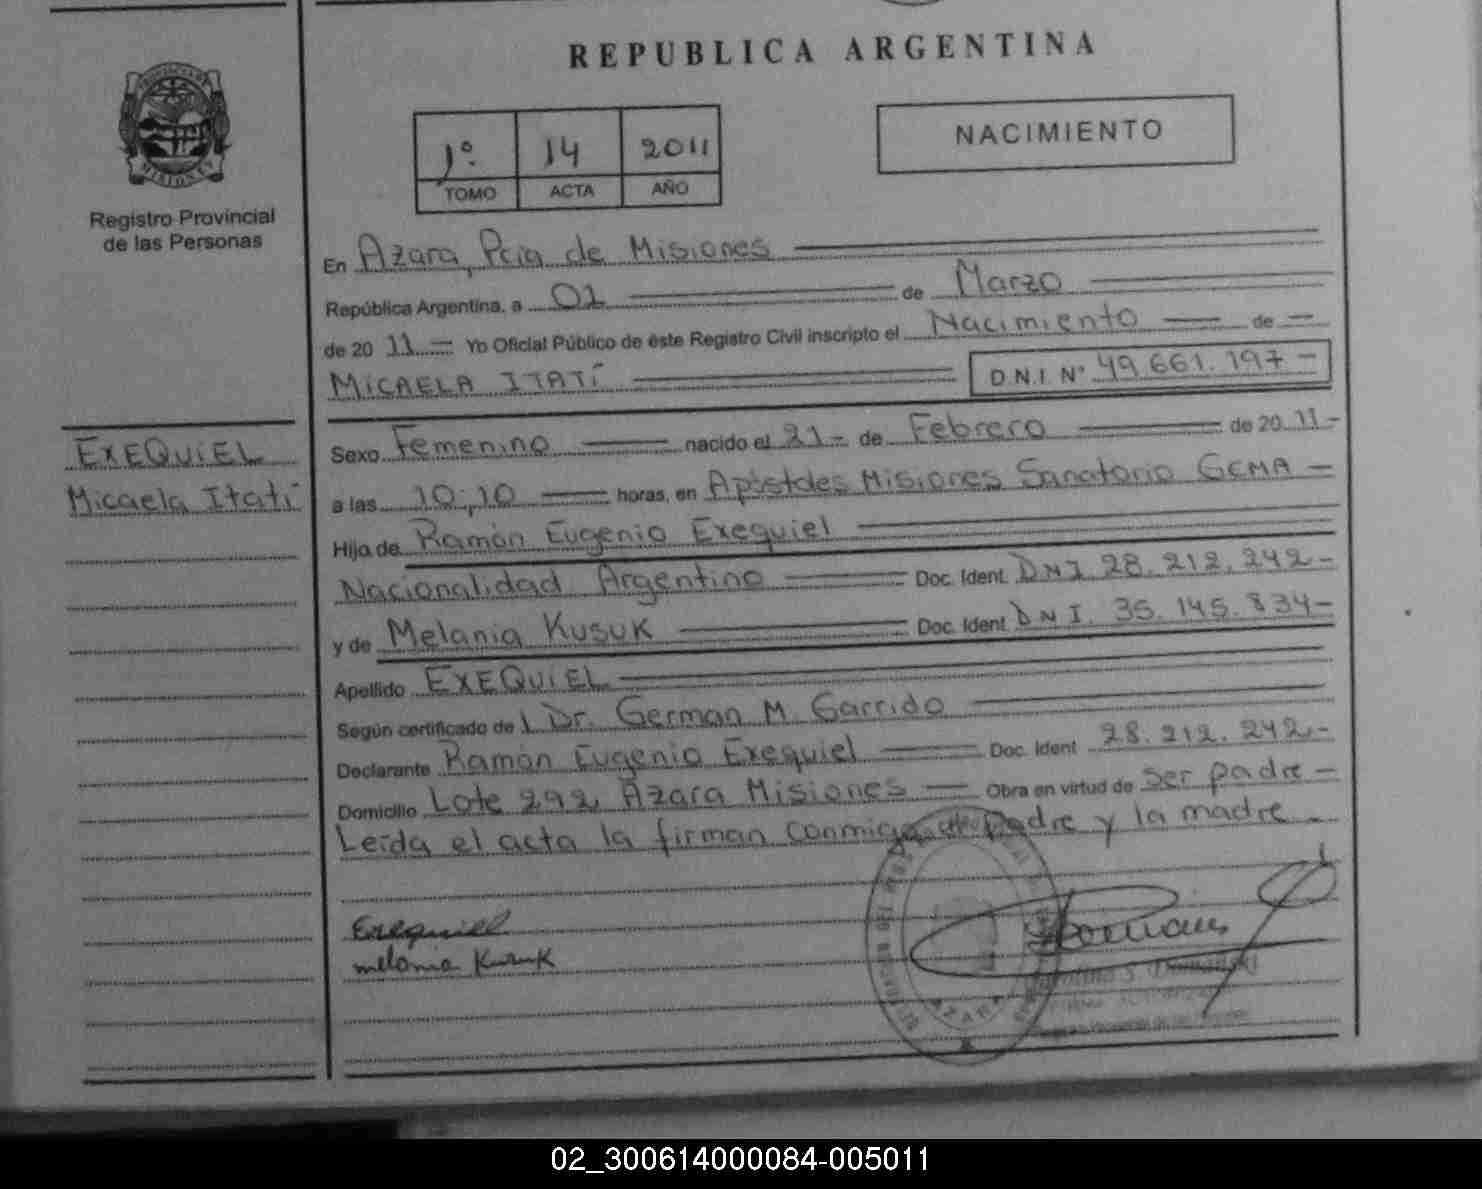 REPUBLICA ARGENTINA
PROVINCIA DE
MISIONES
Registro Provincial
de las Personas
1º 14 2011
TOMO ACTA AÑO
NACIMIENTO
En Azara, Pcia de Misiones
República Argentina, a 02 de Marzo
de 20 11 Yo Oficial Público de éste Registro Civil inscripto el Nacimiento de
MICAELA ITATÍ D.N.I. Nº 49.661.197
EXEQUIEL
Micaela Itatí
Sexo Femenino nacido el 21 de Febrero de 20 11
a las 10:10 horas, en Apóstoles Misiones Sanatorio GEMA
Hija de Ramón Eugenio Exequiel
Nacionalidad Argentino Doc. Ident. DNI 28.212.242
y de Melania Kusuk Doc. Ident. DNI. 35.145.834
Apellido EXEQUIEL
Según certificado de l Dr. German M. Garrido
Declarante Ramón Eugenio Exequiel Doc. Ident 28.212.242
Domicilio Lote 292, Azara Misiones Obra en virtud de ser padre
Leída el acta la firman conmigo el padre y la madre
Exequiel
melania Kusuk
AZARA
02_300614000084-005011